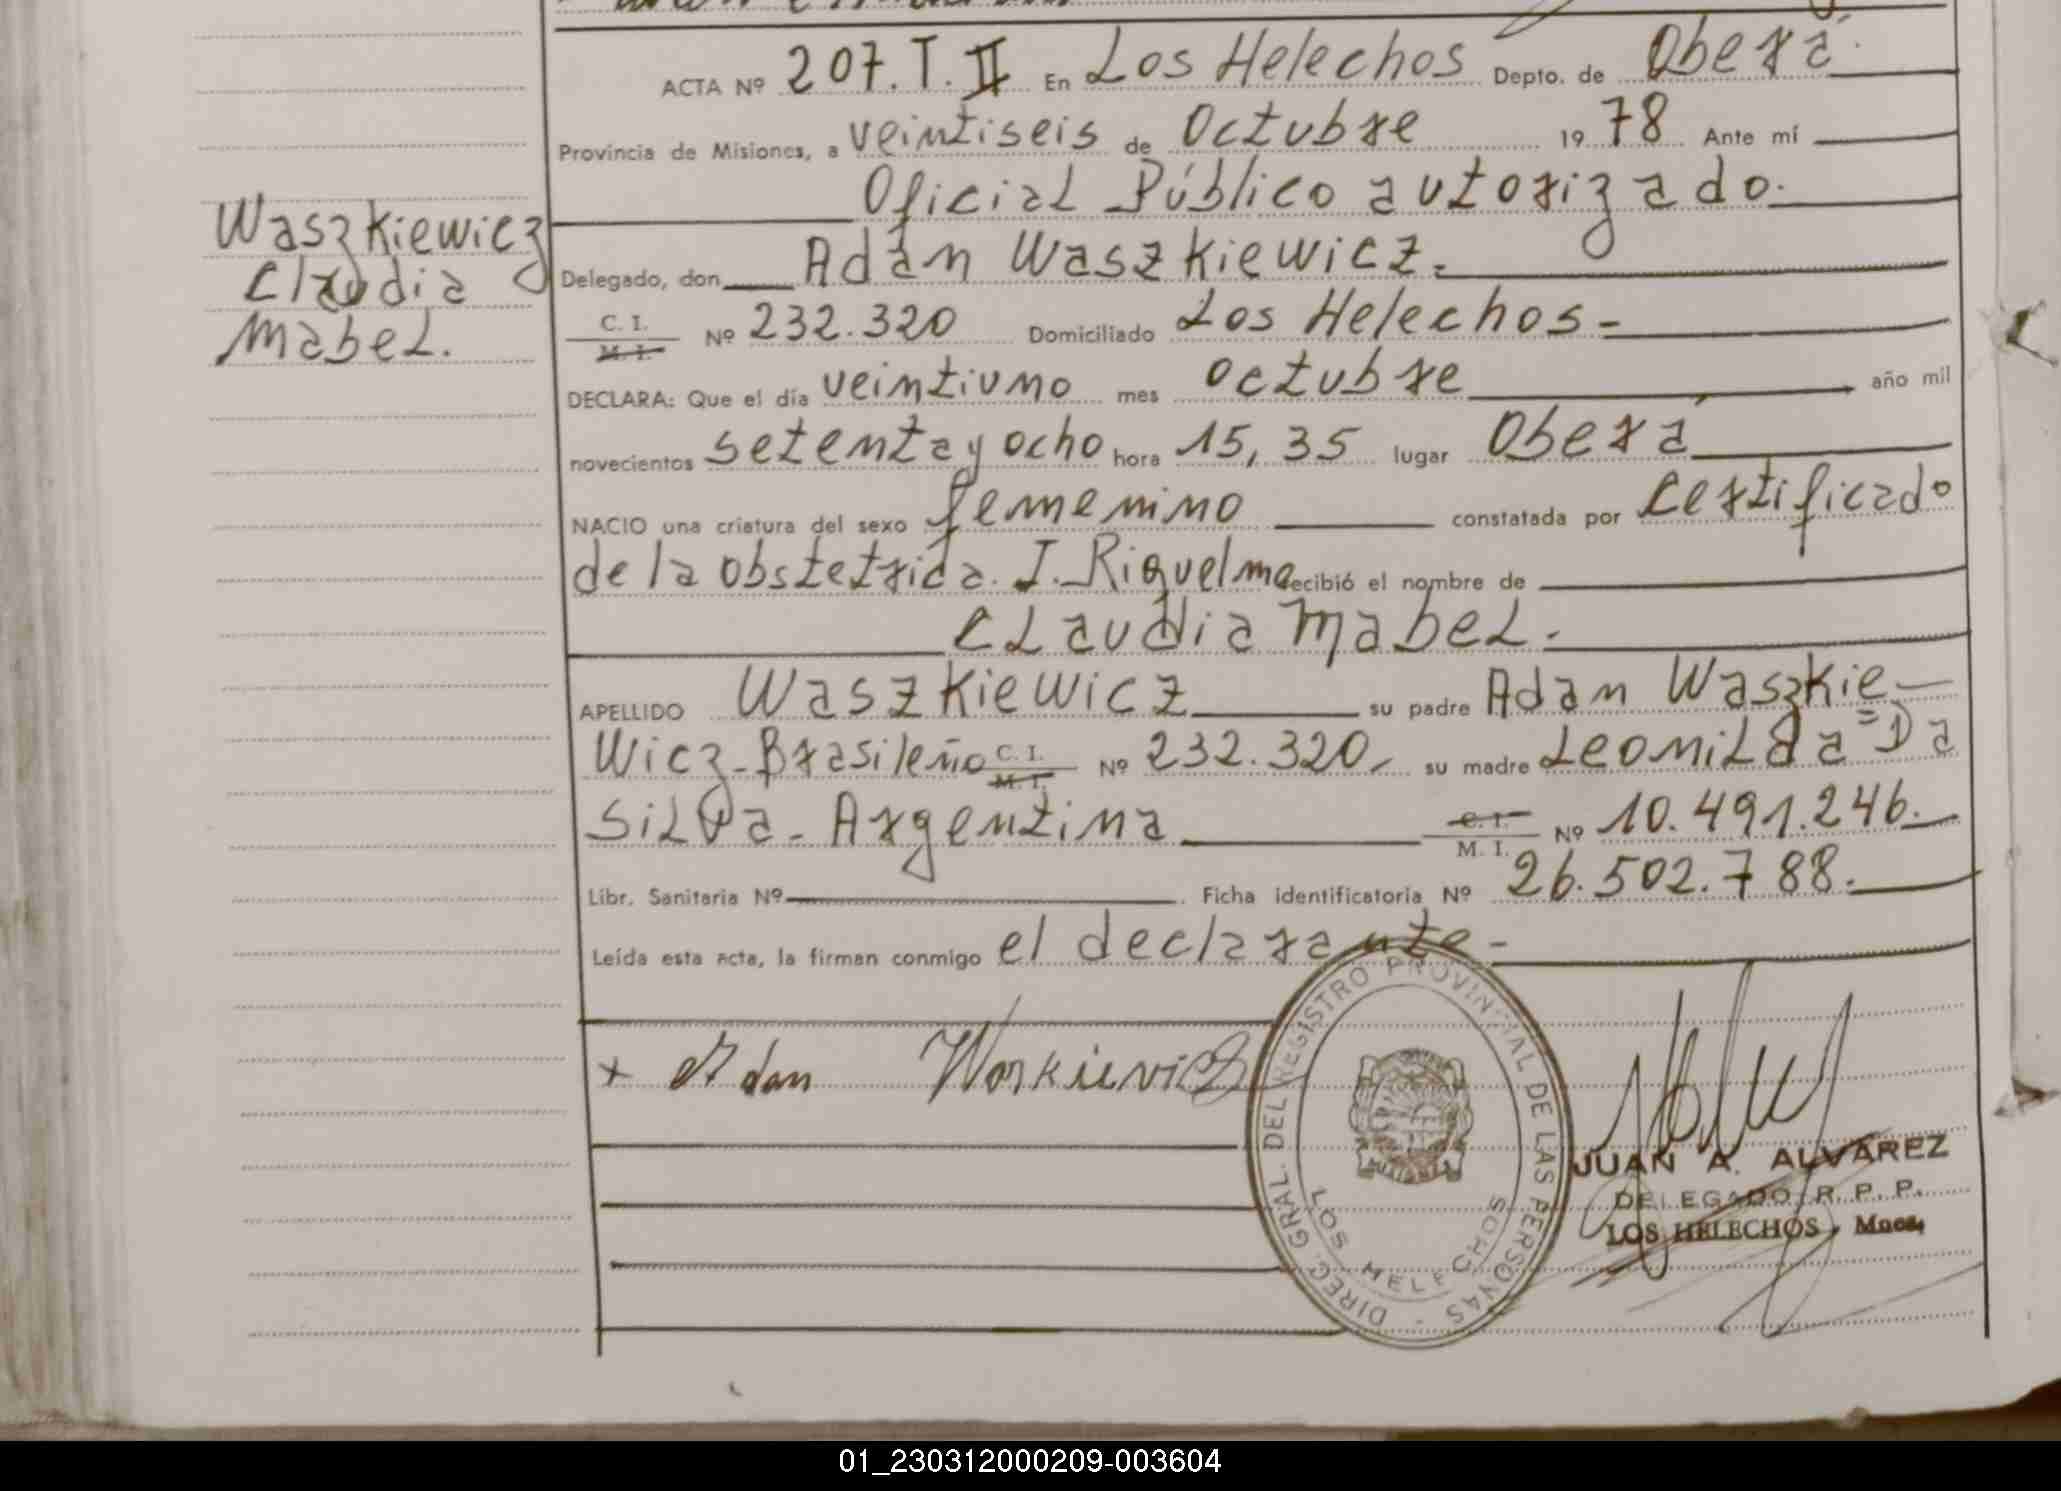 ACTA Nº 207.T.II En Los Helechos Depto. de Oberá.
Provincia de Misiones, a veintiseis de Octubre 1978 Ante mí
Oficial Público autorizado.
Waszkiewicz
Claudia
Mabel.
Delegado, don Adán Waszkiewicz.
C. I. M. I. Nº 232.320 Domiciliado Los Helechos-
DECLARA: Que el día veintiuno mes octubre año mil
novecientos setenta y ocho hora 15,35 lugar Oberá
NACIO una criatura del sexo femenino constatada por certificado
de la obstetrica. I. Riquelme recibió el nombre de
Claudia Mabel.
APELLIDO Waszkiewicz su padre Adam Waszkie-
wicz-Brasileño C. I. M. I. Nº 232.320,- su madre Leonilda=Da
Silva-Argentina C. I. M. I. Nº 10.491.246.
Libr. Sanitaria Nº Ficha identificatoria Nº 26.502.788.
Leída esta acta, la firman conmigo el declarante-
+ Adan Workievicz
DIREC. GRAL. DEL REGISTRO PROVINCIAL DE LAS PERSONAS -
LOS HELECHOS
JUAN A. ALVAREZ
DELEGADO R. P. P.
LOS HELECHOS, Mnes.
01_230312000209-003604